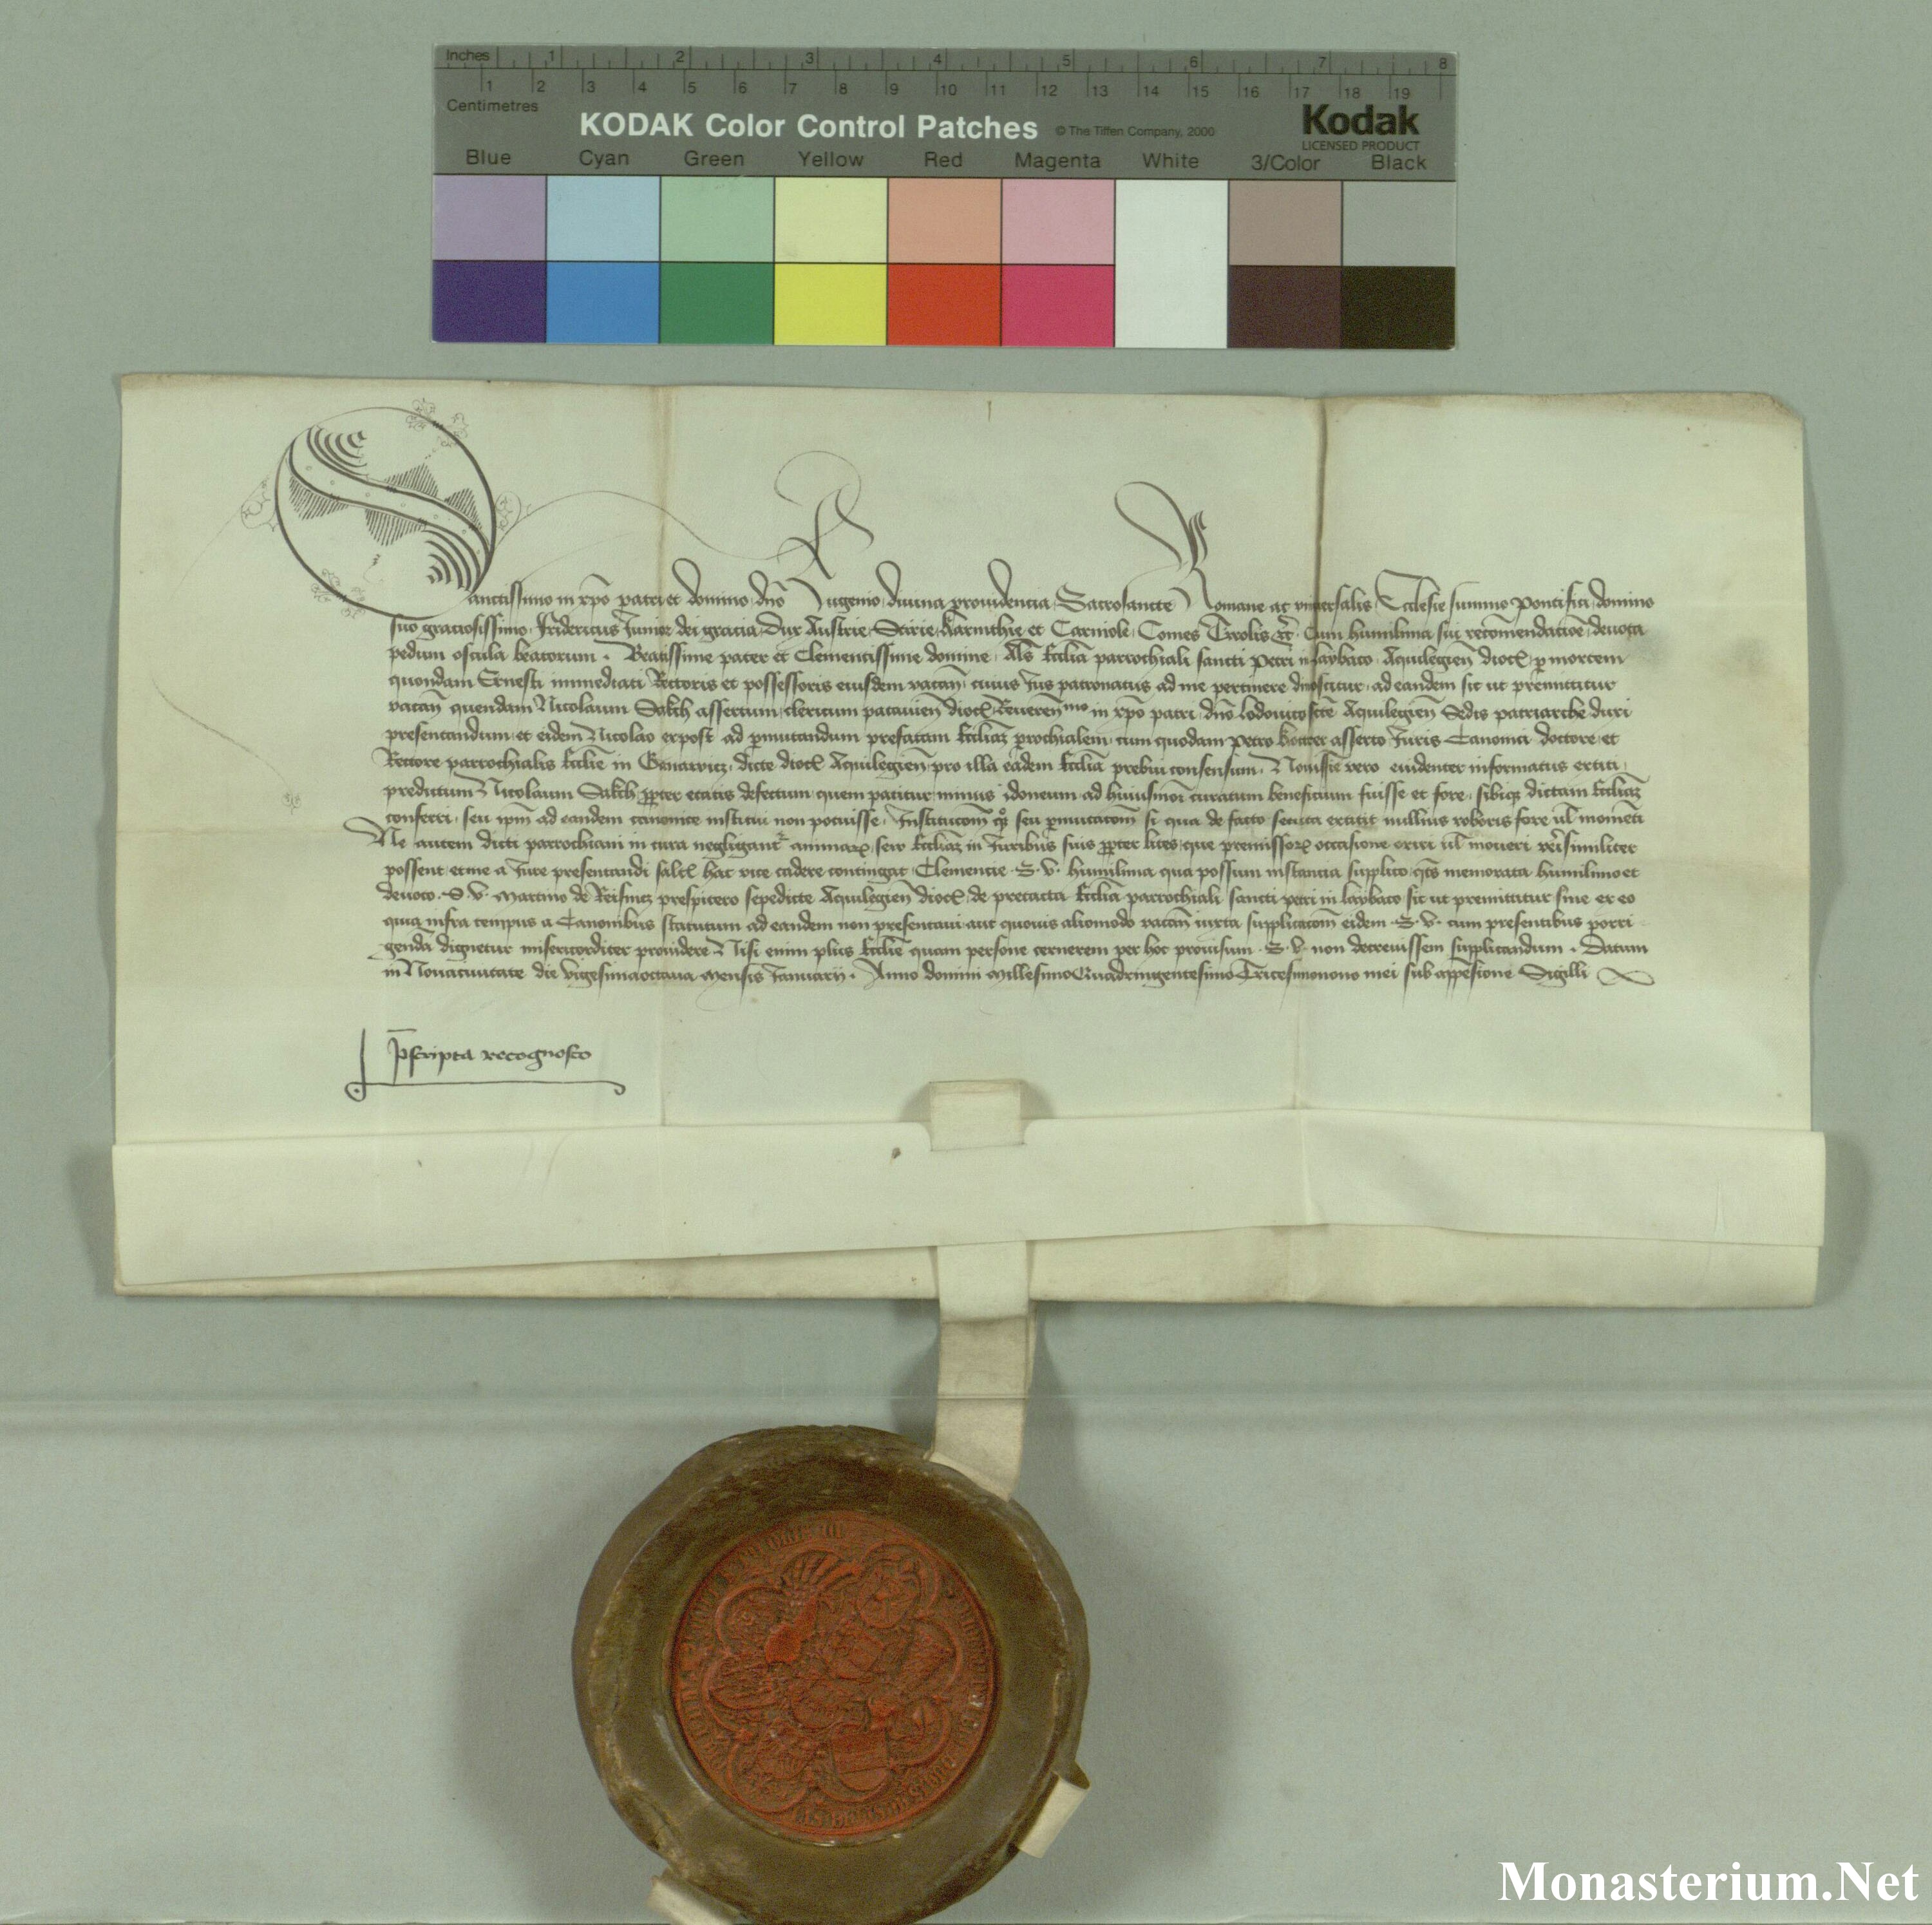 Inches 1 2 3 4 5 6 7 8
1 2 3 4 5 6 7 8 9 10 11 12 13 14 15 16 17 18 19
Centimetres
KODAK Color Control Patches © The Tiffen Company, 2000 Kodak
LICENSED PRODUCT
Blue Cyan Green Yellow Red Magenta White 3/Color Black
Sanctissimo in xpo patri et domino dno Eugenio diuina prouidencia Sacrosancte Romane ac vniuersalis Ecclesie summo Pontifici domino
suo graciosissimo Fridericus Junior dei gracia Dux Austrie Stirie Karinthie et Carniole Comes Tirolis etc̃ Cum humilima sui recōmendacōe deuota
pedum oscula beatorum . Beatissime pater et Clementissime domine Als Eccliā parrochiali sancti Petri in laybaco Aquilegien̄ dioc̄ p mortem
quondam Ernesti immediati Rectoris et possessoris eiusdem vacan̄ cuius Jus patronatus ad me pertinere dinoscitur ad eandem sic ut premittitur
vacan̄ quendam Nicolaum Sakch assertum clericum patauien̄ dioc̄ Reueren̄mo in xpo patri dno lodouico scte Aquilegien̄ Sedis patriarche duxi
presentandum et eidem Nicolao expost ad pmutandum prefatam Eccliaz prochialem cum quodam Petro asserto Juris Canonici doctore et
Rectore parrochialis Ecclie in Gonawicz dicte dioc̄ Aquilegien̄ pro illa eadem Ecclia prebui consensum . Nouissie vero euidenter informatus extiti
predictum Nicolaum Sakch ppter etatis defectum quem patitur minus ydoneum ad huiusmoi curatum beneficium fuisse et fore sibiq dictam Eccliaz
conferri seu ipm ad eandem canonice institui non potuisse Institucom seu pmutacom si qua de facto secuta extitit nullius roboris fore ul momenti
Ne autem dicti parrochiani in cura negligant animarz seu Eccliaz in Juribus suis ppter lites que premissorz occasione oriri ul moueri verisimiliter
possent et me a Jure presentandi saltē hac vice cadere contingat Clemencie S. V. humilima qua possum instancia supplico memorata humilimo et
deuoto S. V. Martino de Reifnicz prespitero sepedicte Aquilegien̄ dioc̄ de pretacta Ecclia parrochiali sancti petri in laybaco sic ut premittitur siue ex eo
quia infra tempus a Canonibus statutum ad eandem non presentaui aut quouis alio modo vacan̄ iuxta supplicacom eidem S. V. cum presentibus porri
genda dignetur misericorditer prouidere Nisi enim plus Ecclie quam persone cernerem per hoc prouisum S. V. non decreuissem supplicandum . Datum
in Nouaciuitate die vigesimaoctaua Mensis Januarij . Anno domini Millesimo Quadringentesimo Tricesimonono mei sub appēsione Sigilli
Pscripta recognosco
Monasterium.Net